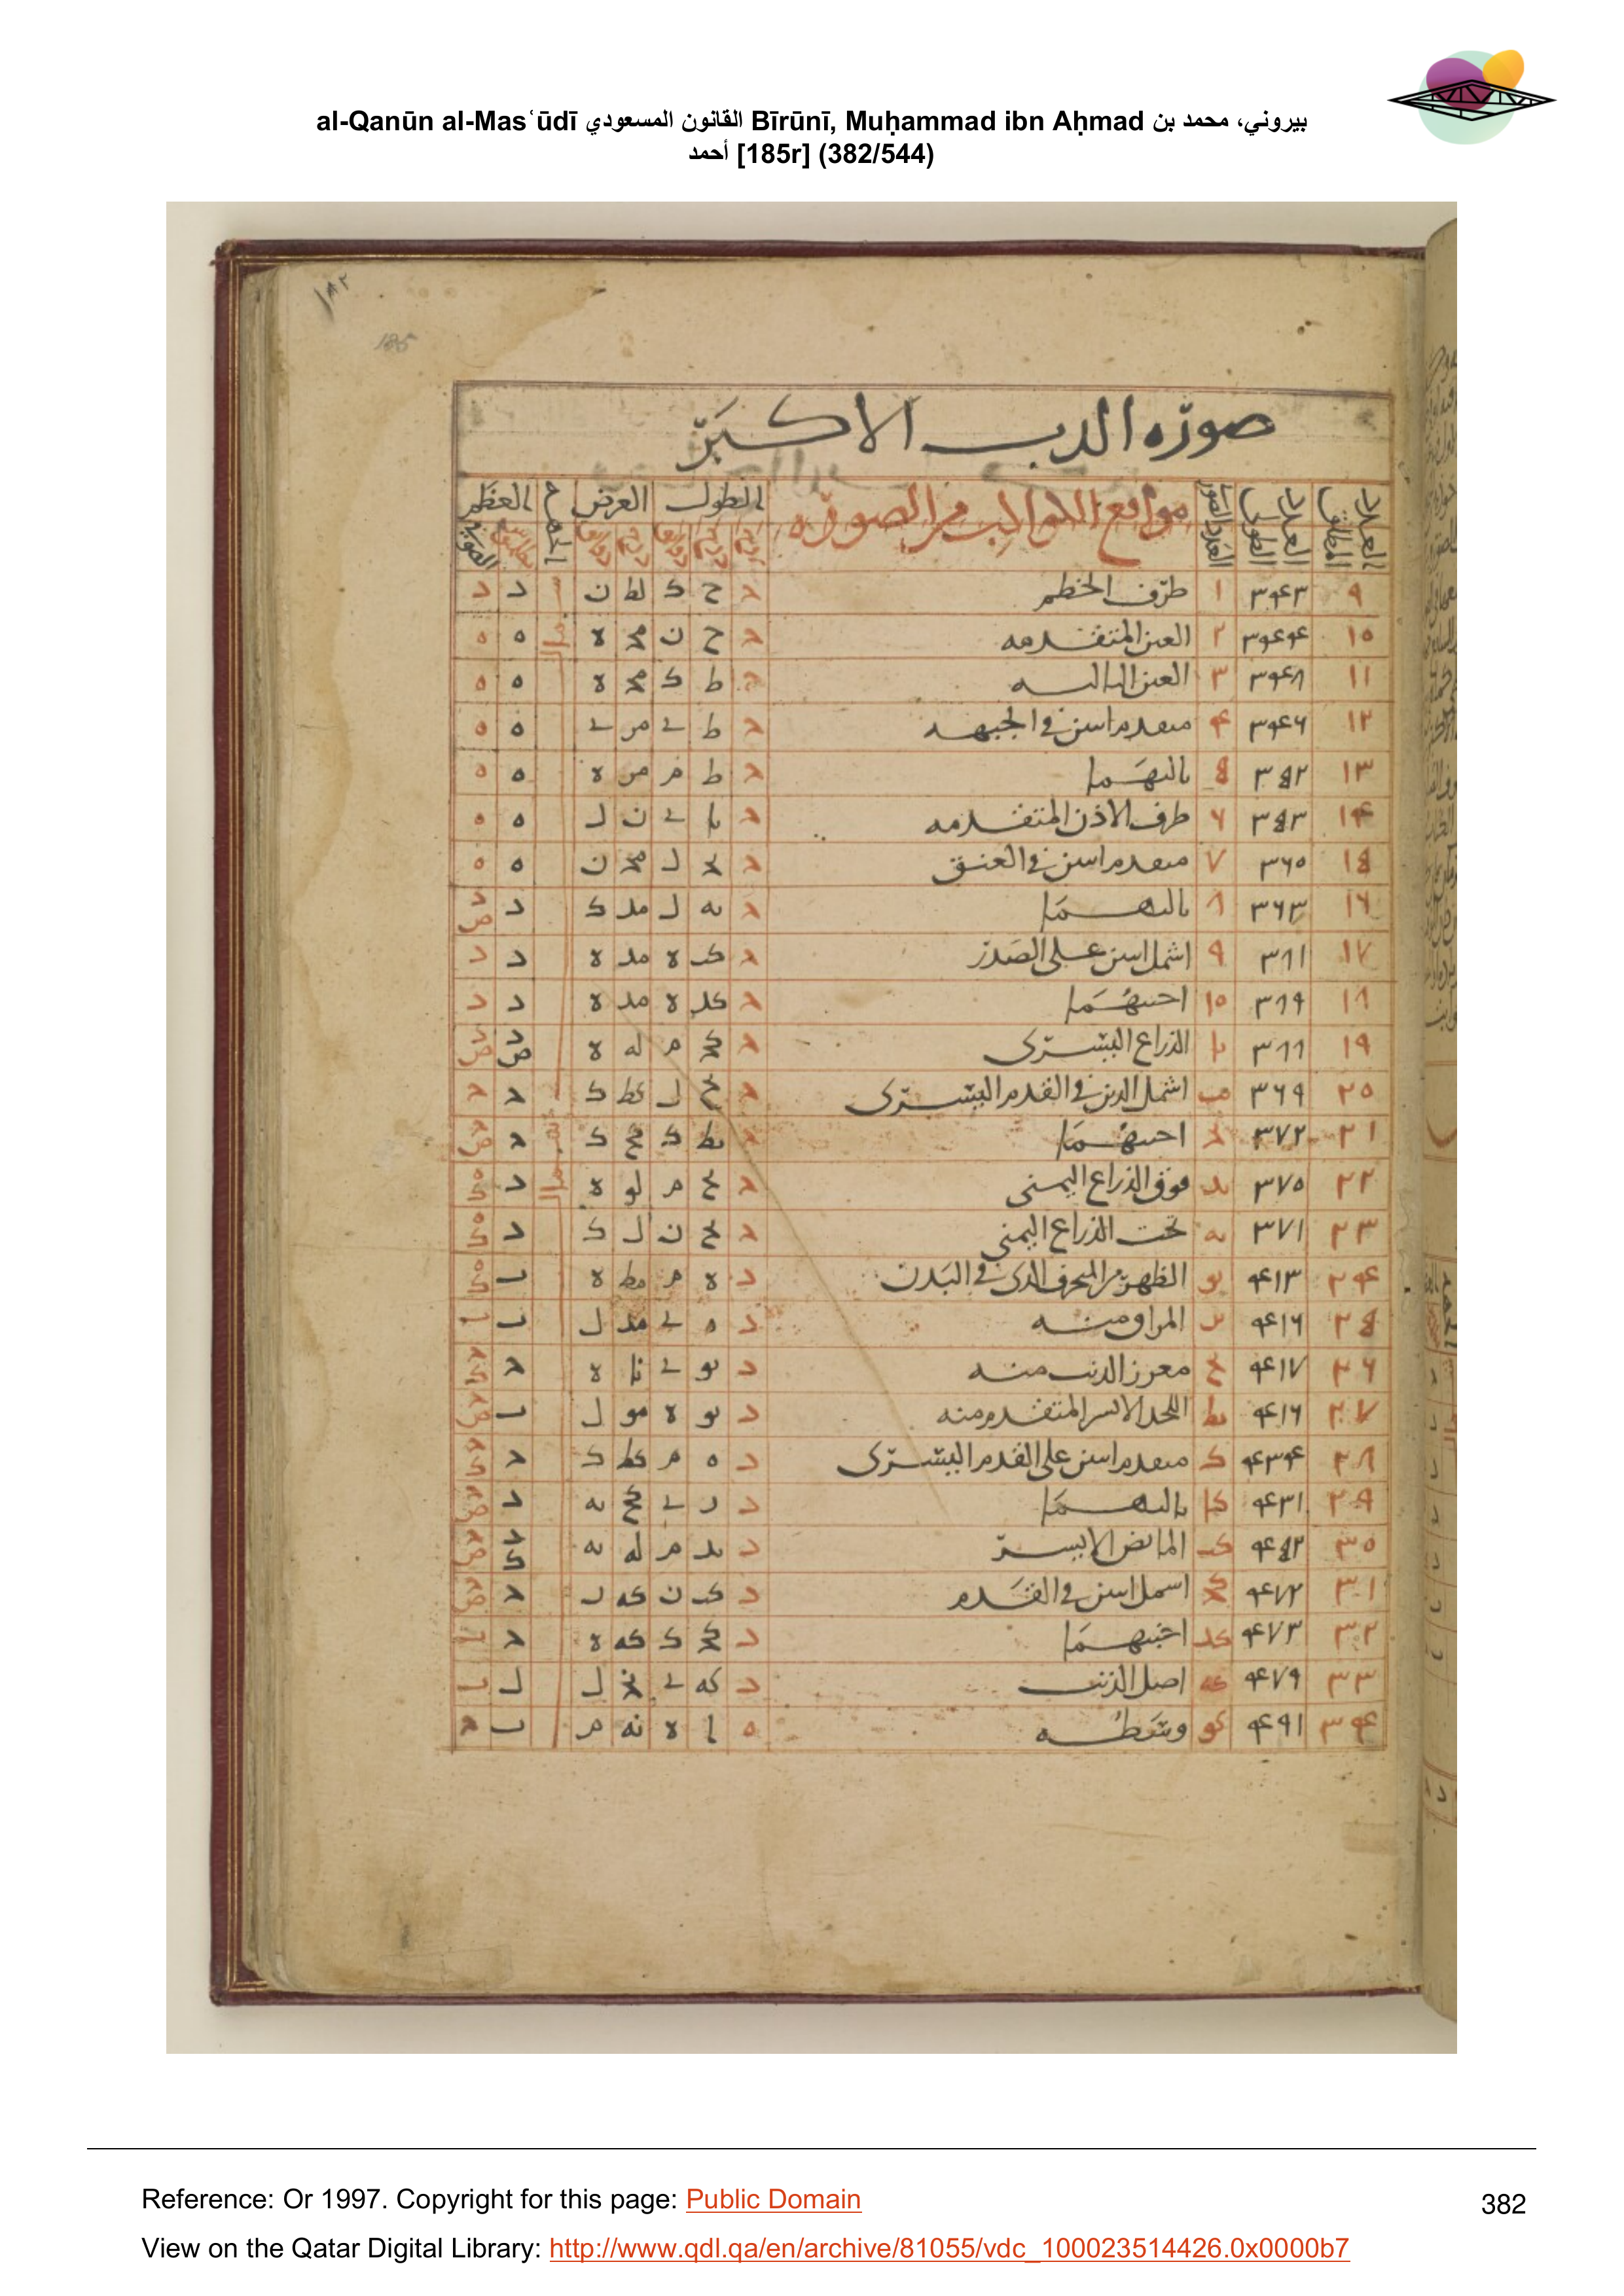 al-Qanūn al-Mas‘ūdī القانون المسعودي Bīrūnī, Muḥammad ibn Aḥmad بيروني، محمد بن
أحمد [185r] (382/544)
١٨٢
185
صورة الدب الاكبر
العدد المطلق العدد الطولى العدد الصور مواقع الكواكب من الصورة الطول العرض الجهة العظم
٩ ٣٤٣ ١ طرف الخطم د ح ك لط ن د د
١٥ ٣٤٤ ٢ العين المتقدمه د ح ن مح ه ه ه
١١ ٣٤٨ ٣ العين التاليه ط ك مح ه ه ه
١٢ ٣٤٦ ٤ متقدم اثنين في الجبهه د ط ي مر ي ه ه
١٣ ٣٥٢ ٥ تاليهما د ط م مر ه ه ه
١٤ ٣٥٣ ٦ طرف الاذن المتقدمه د يا ي ن ل ه ه
١٥ ٣٦٥ ٧ متقدم اثنين في العنق د يح ل مح ن ه ه
١٦ ٣٦٣ ٨ تاليهما د يه ل مد ك د
١٧ ٣٨١ ٩ اشمل اثنين على الصدر د كب ه مد ه د د
١٨ ٣٨٩ ١٥ اجنبهما د كد ه مد ه د د
١٩ ٣٨٨ يا الذراع اليسرى د كح م له ه
٢٥ ٣٦٩ يب اشمل الذين في القدم اليسرى د يح ل كط ك
٢١ ٣٧٢ يح اجنبهما د يط ك كح ك
٢٢ ٣٧٥ يد فوق الذراع اليمنى د يح م لو ه د
٢٣ ٣٧١ يه تحت الذراع اليمنى د يح ن ل ك د
٢٤ ٤١٣ يو الظهر من المنحرف الذى في البدن د ه م مط ه ب
٢٥ ٤١٦ يز المراق منه د ه ي مد ل ب
٢٦ ٤١٧ يح مغرز الذنب منه د يو ي نا ه
٢٧ ٤١٦ يط الفخذ الايسر المتقدم منه د يو ه مو ل ب
٢٨ ٤٣٤ ك متقدم اثنين على القدم اليسرى د ه م كط ك
٢٩ ٤٣١ كا تاليهما د ر ي كح يه د
٣٥ ٤٥٢ كب المابض الايسر د يد م له يه
٣١ ٤٧٢ كح اشمل اثنين في القدم د كب ن كه ل
٣٢ ٤٧٣ كد اجنبهما د كح ك كه ه
٣٣ ٤٧٩ كه اصل الذنب د كه ي نح ل
٣٤ ٤٩١ كو وسطه ه ا ه نه م ب
Reference: Or 1997. Copyright for this page: Public Domain
382
View on the Qatar Digital Library: http://www.qdl.qa/en/archive/81055/vdc_100023514426.0x0000b7